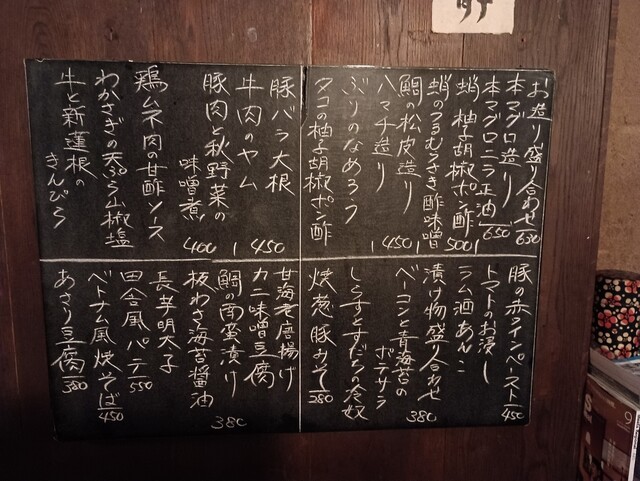 お造り盛り合わせ 630
本マグロ造り
本マグロニラ正油 650
蛸柚子胡椒ポン酢 500
蛸のつるむらさき酢味噌
鯛の松皮造り 450
ハマチ造り
ぶりのなめろう
タコの柚子胡椒ポン酢
豚バラ大根 450
牛肉のヤム
豚肉と秋野菜の
味噌煮 400
鶏ムネ肉の甘酢ソース
わかさぎの天ぷら山椒塩
牛と新蓮根の
きんぴら
豚の赤ワインペースト 450
トマトのお浸し
ラム酒あんこ
漬け物盛り合わせ 380
ベーコンと青海苔の
ポテサラ
しらすとすだちの冷奴
焼葱豚みそ 280
甘海老唐揚げ
カニ味噌豆腐
鯛の南蛮漬け 380
板わさ海苔醤油
長芋明太子
田舎風パテ 550
ベトナム風焼そば 450
あさり豆腐 380